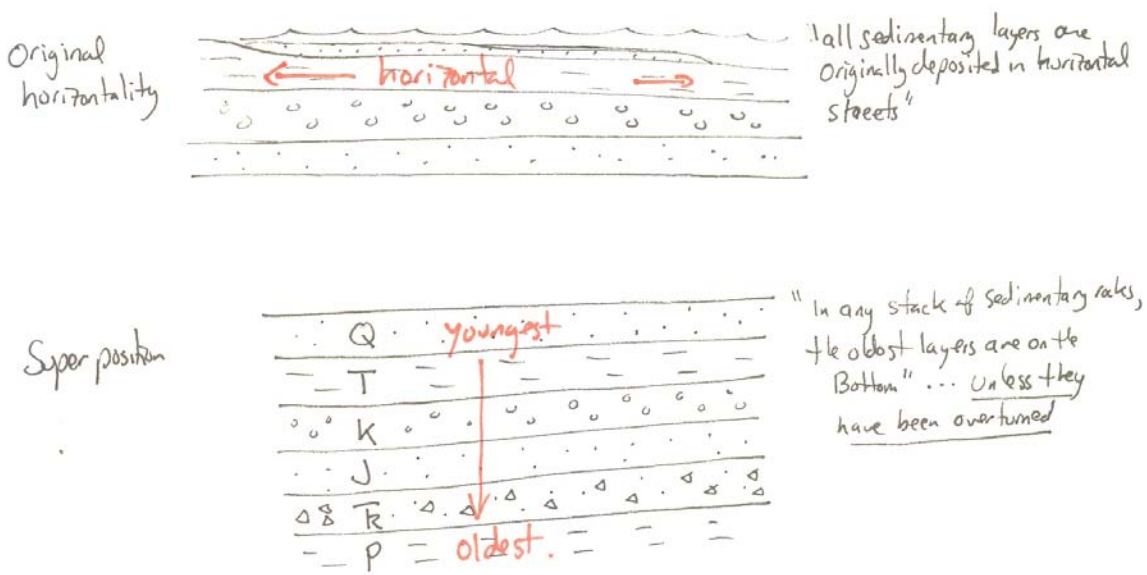 Original
horizontality
horizontal
"all sedimentary layers are
originally deposited in horizontal
sheets"
Super position
Q
youngest
T
K
J
Ꞧ
P
oldest.
"In any stack of sedimentary rocks,
the oldest layers are on the
Bottom" ... unless they
have been overturned